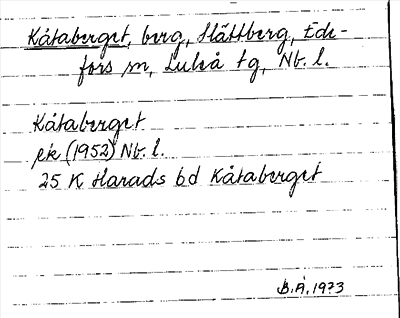 Kåtaberget, berg, Slättberg, Ede-
fors sn, Luleå tg, Nb. l.
Kåtaberget
ek (1952) Nb. l.
25 K Harads 6d Kåtaberget
B.Å. 1973